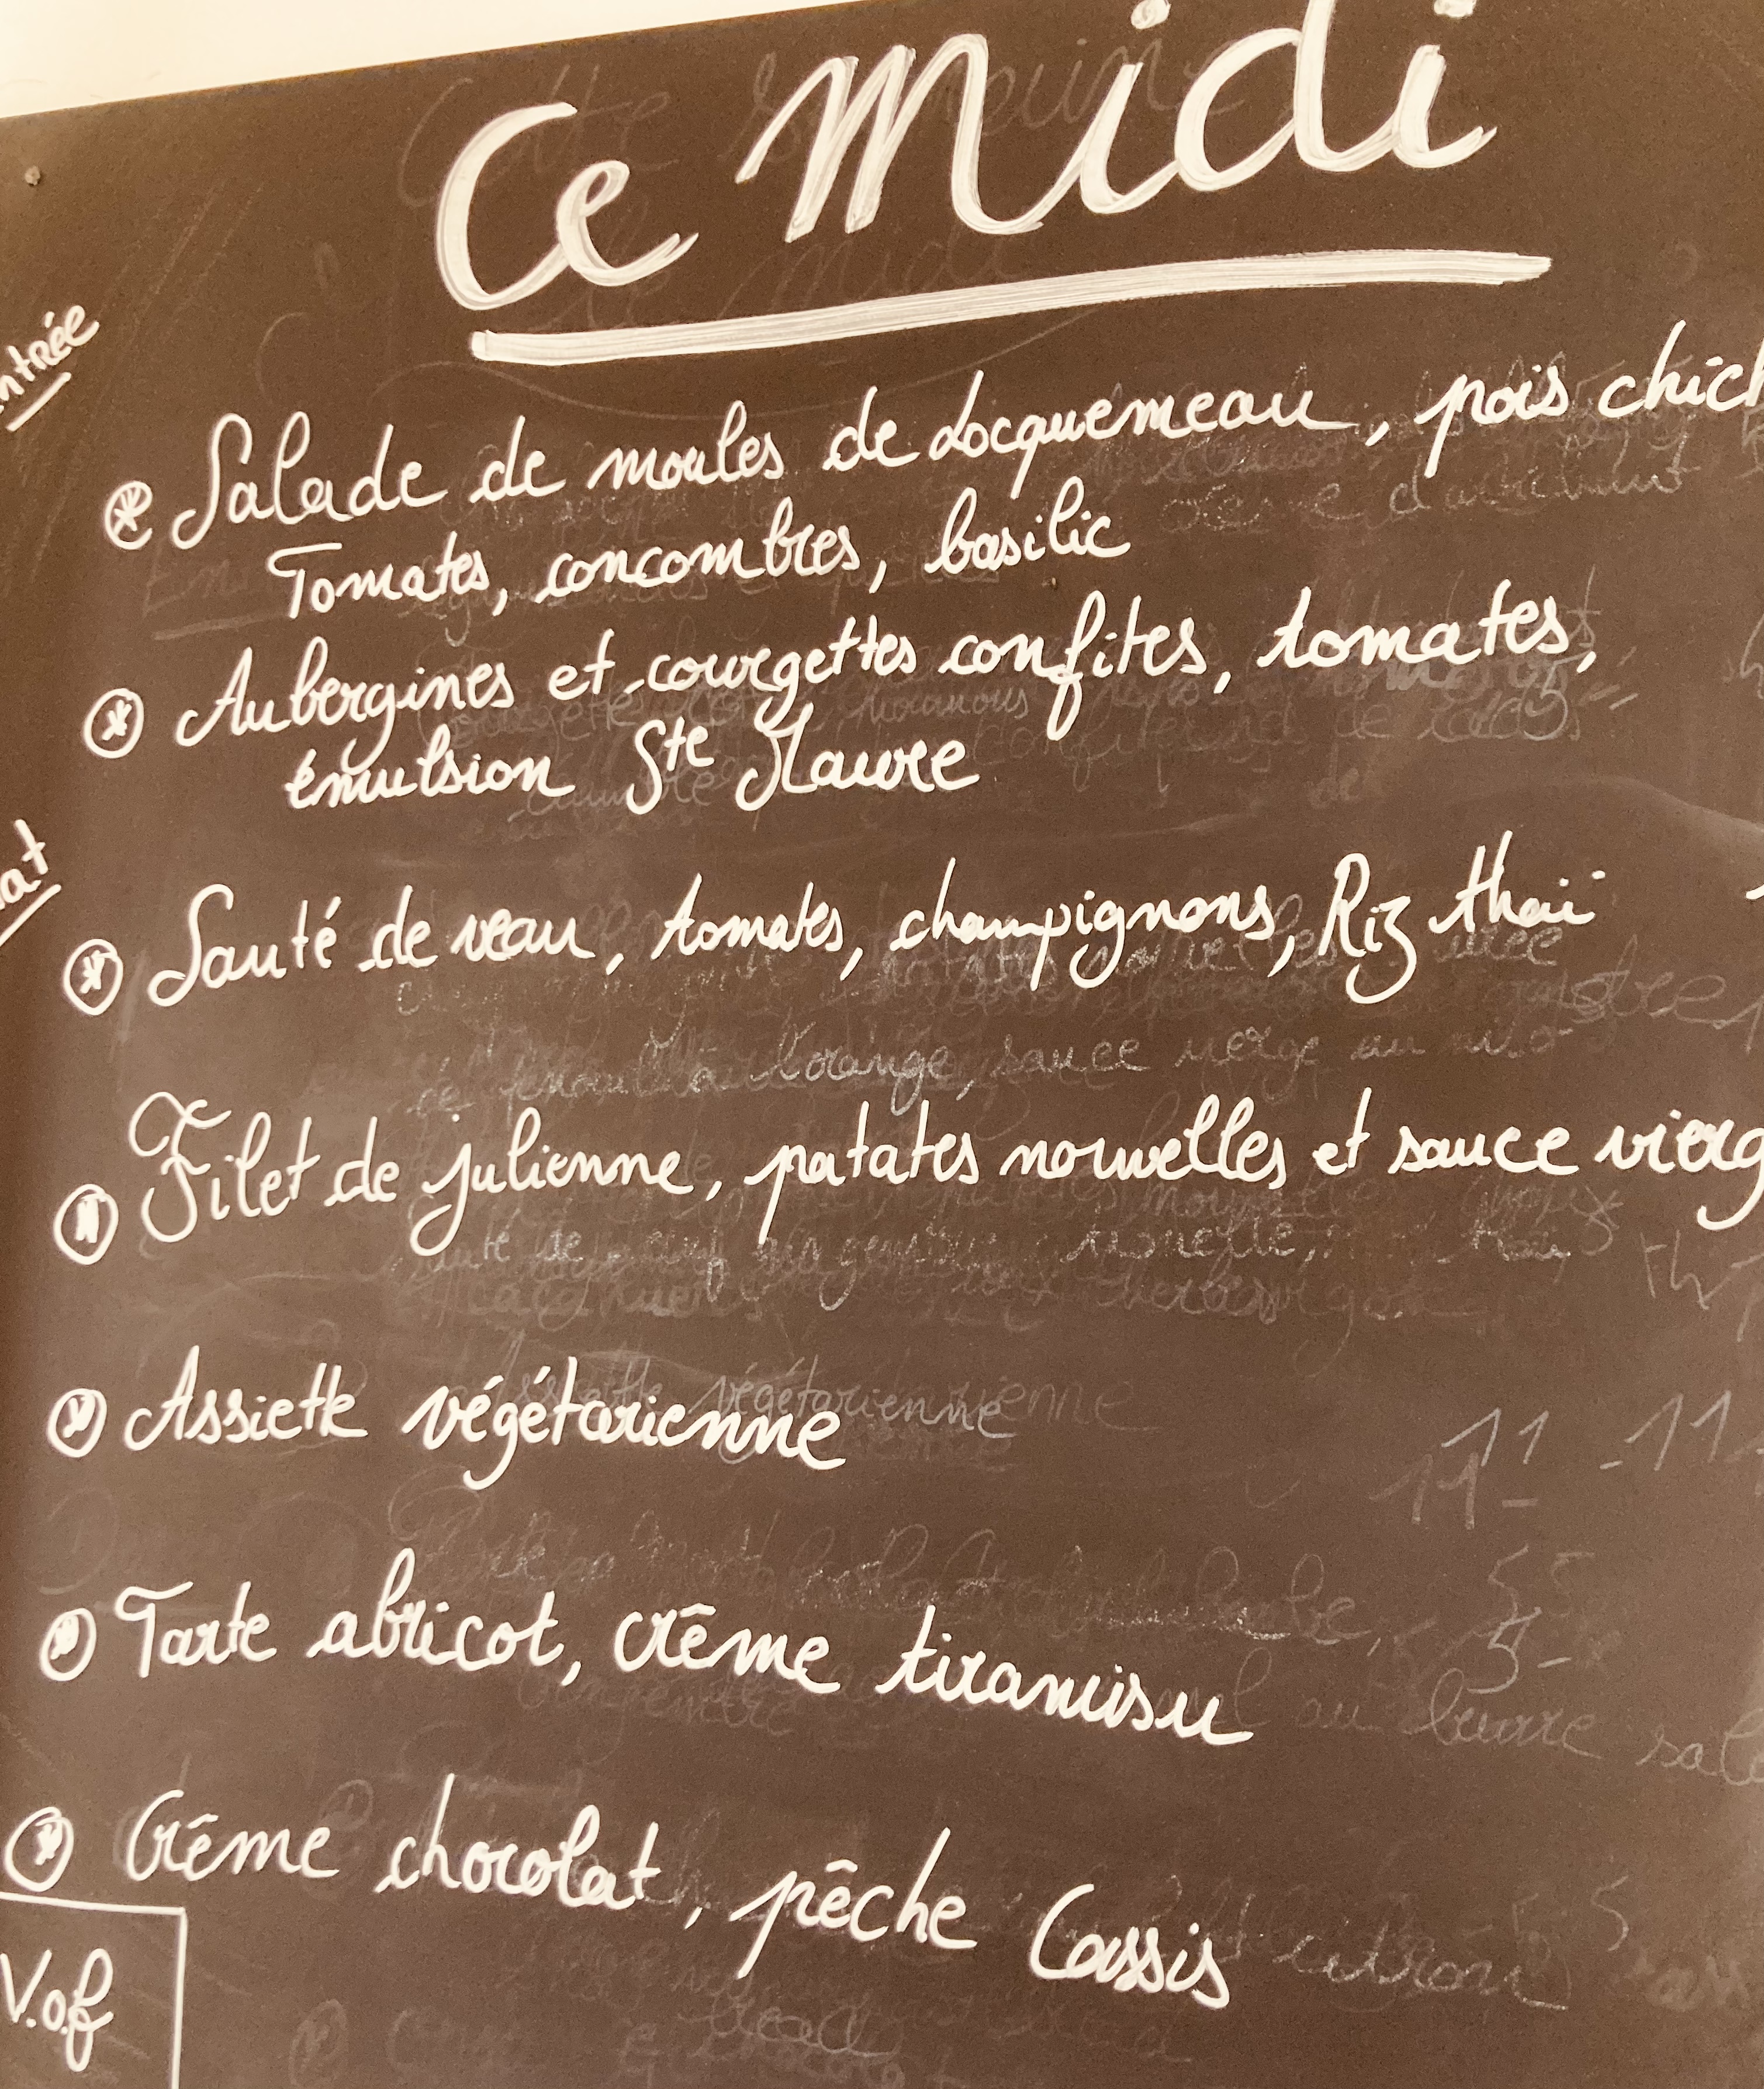 Ce Midi
ntrée
Salade de moules de Locquemeau, pois chich
Tomates, concombres, basilic
Aubergines et courgettes confites, tomates,
émulsion Ste Maure
at
Sauté de veau, tomates, champignons, Riz thaï
Filet de julienne, patates nouvelles et sauce vierg
Assiette végétarienne
Tarte abricot, crême tiramisu
Crême chocolat, pêche Cassis
V.o.f